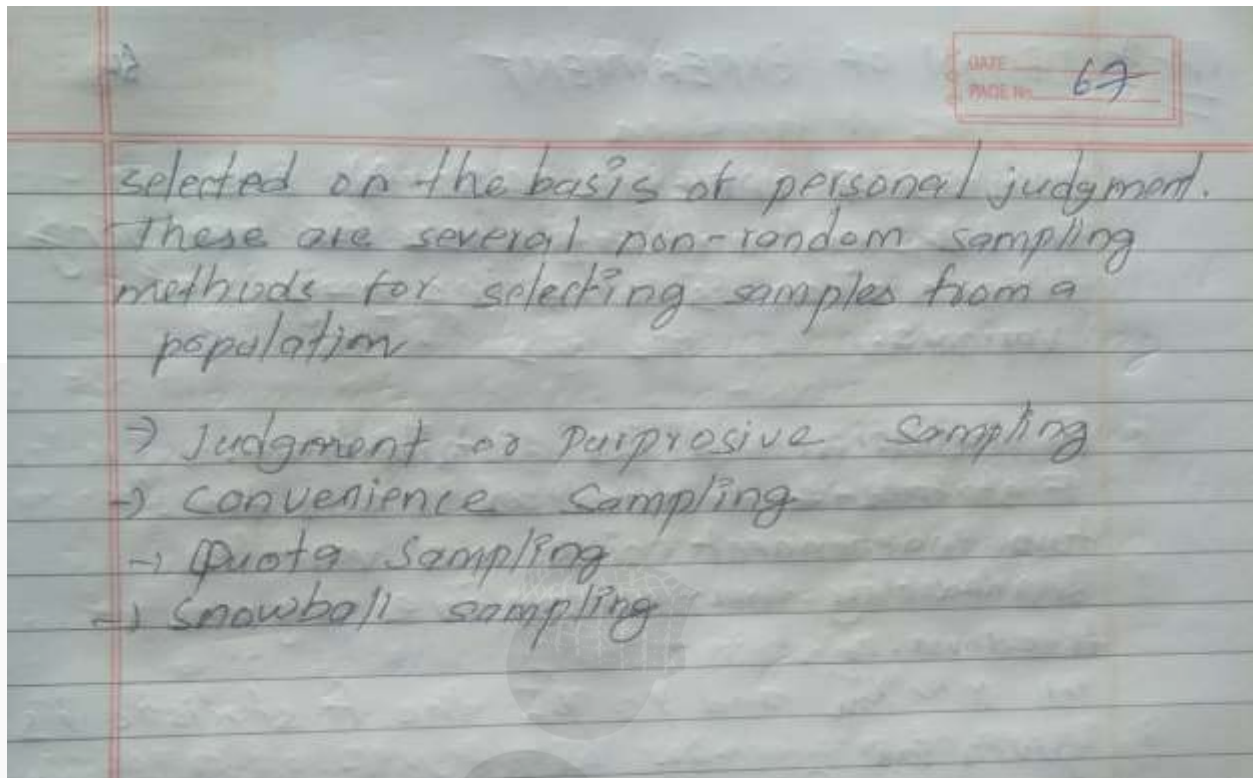 DATE
PAGE No. 67
selected on the basis of personal judgment.
These are several non-random sampling
methods for selecting samples from a
population
→ Judgment or Purprosive Sampling
→ Convenience Sampling
→ Quota Sampling
→ Snowball sampling